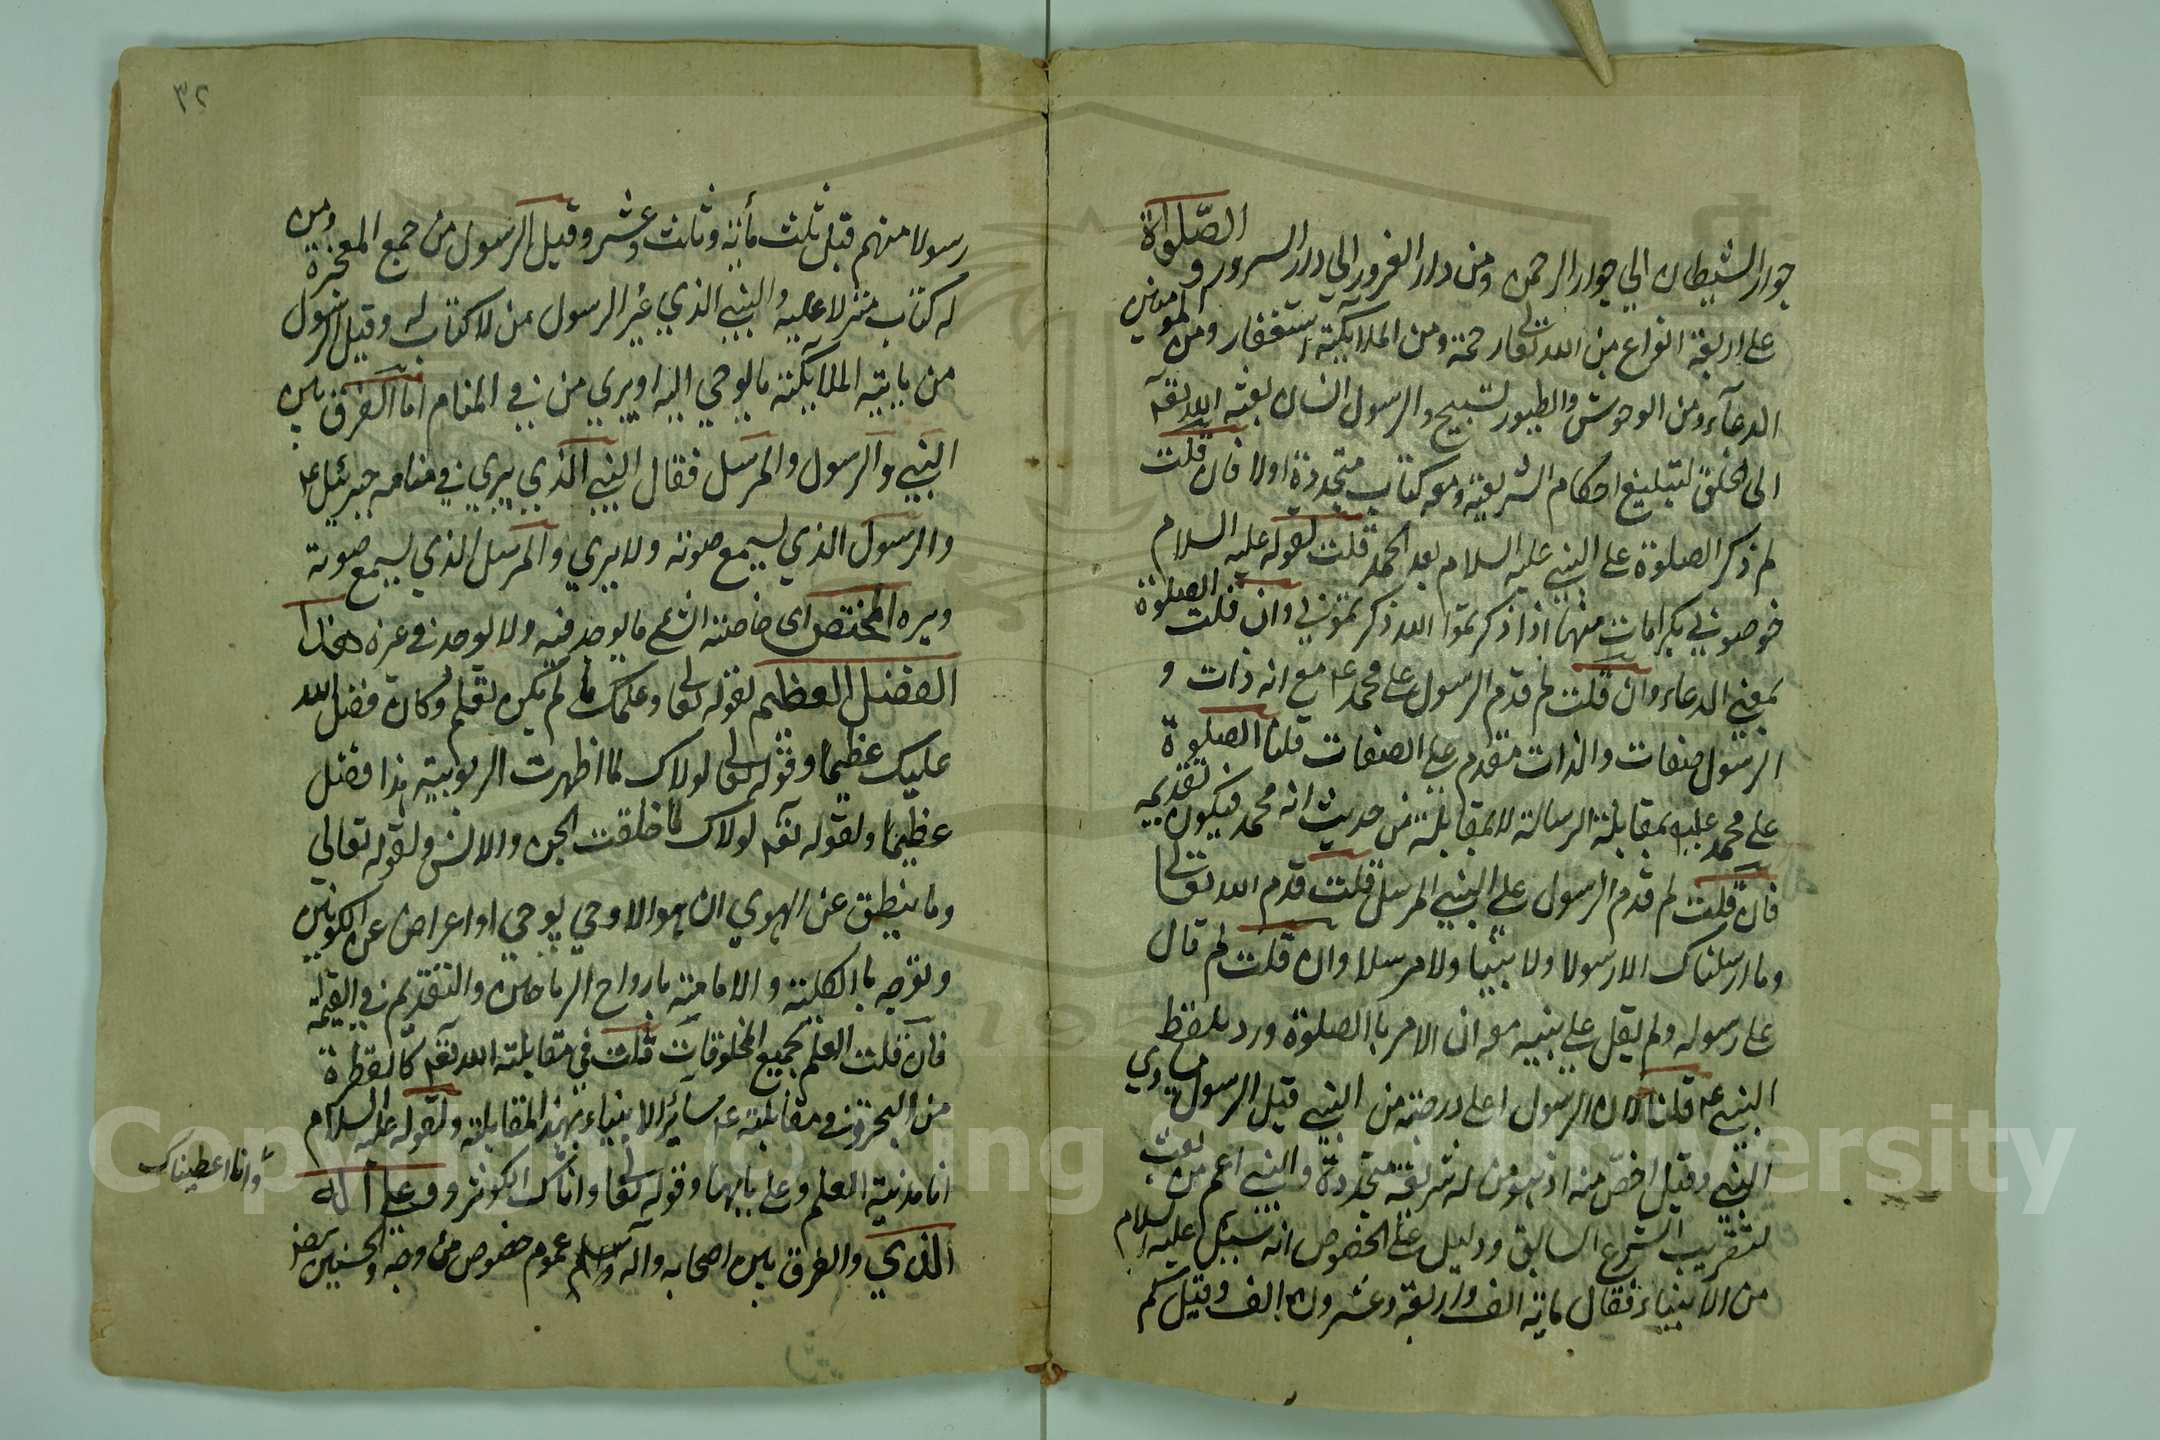 جوار الشيطان الي جوار الرحمن ومن دار الغرور الي دار السرور و الصّلواة
علي اربعة انواع من الله تعالي رحمة ومن الملآئكة استغفار ومن المومنين
الدعآء ومن الوحوش والطيور تسبيح والرسول انسان بعثه الله تعه
الى الخلق لتبليغ احكام الشريعة ومعه كتاب متجددة اولا فان قلت
لم ذكر الصلوة علي النبي عليه السلام بعد الحمد قلت لقوله عليه السلام
خصوصني بكرامات منها اذا ذكروا الله ذكروني وان قلت الصلوة
بمعني الدعاء وان قلت لم قدم الرسول علي محمد ع م مع انه ذات و
الرسول صفات والذات متقدم علي الصفات قلنا الصلوة
علي محمد عليه بمقابلة الرسالة لا بمقابلة من حديث انه محمد فيكون تقديمه
فان قلت لم قدم الرسول علي النبي المرسل قلت قدم الله تعالي
وما ارسلناك الا رسولا ولا نبيا ولا مرسلا وان قلت لم قال
علي رسوله ولم يقل علي نبيه مع ان الامر باالصلوة ورد بلفظ
النبي ع م قلنا لان الرسول اعلي درجته من النبي قيل الرسول مساوي
النبي وقيل اخصّ منه اذ هو من له شريعة متجددة والنبي اعم من بعث
لتقريب الشرع السابق ودليل علي الخصوص انه سئل عليه السلام
من الانبياء فقال ماية الف واربعة وعشرون الف وقيل كم
٣٢
رسولا منهم قبل ثلث مأتة وثلث وعشر وقيل الرسول من جمع المعجزة ومن
له كتاب منزلا عليه والنبي الذي غير الرسول من لا كتاب له وقيل الرسول
من يأتيه الملآئكة بالوحي اليه او يري من في المنام اما الفرق بين
النبي والرسول والمرسل فقال النبي الذي يري في منامه جبرئيل ع م
والرسول الذي يسمع صوته ولا يري والمرسل الذي يسمع صوته
ويره المختص اى خاصته الشئ ما يوجد فيه ولا يوجد في غيره هذا
الفضل العظيم لقوله تعالي وعلمك ما لم تكن تعلم وكان فضل الله
عليك عظيما وقوله تعالي لولاك لما اظهرت الربوبية هذا فضل
عظيما ولقوله تعه لولاك لما خلقت الجن والانس ولقوله تعالي
وما ينطق عن الهوي ان هو الا وحي يوحي او اعراض عن الكونين
وتوجه باالكلية والامامة بارواح الرباحين والتقديم في القيمة
فان قلت العلم لجميع المخلوقات قلت في مقابلته الله تعه كالقطرة
من البحر وفي مقابلته ع م سآئر الانبياء بهذ المقابلة ولقوله عليه السلام
انا مدنية العلم وعلي بابها وقوله تعالي واناك الكوثر و وعلي اله
وانا اعطيناك
الذي والفرق بين اصحابه وآله وسلم عموم خصوص من وجه والحسنين